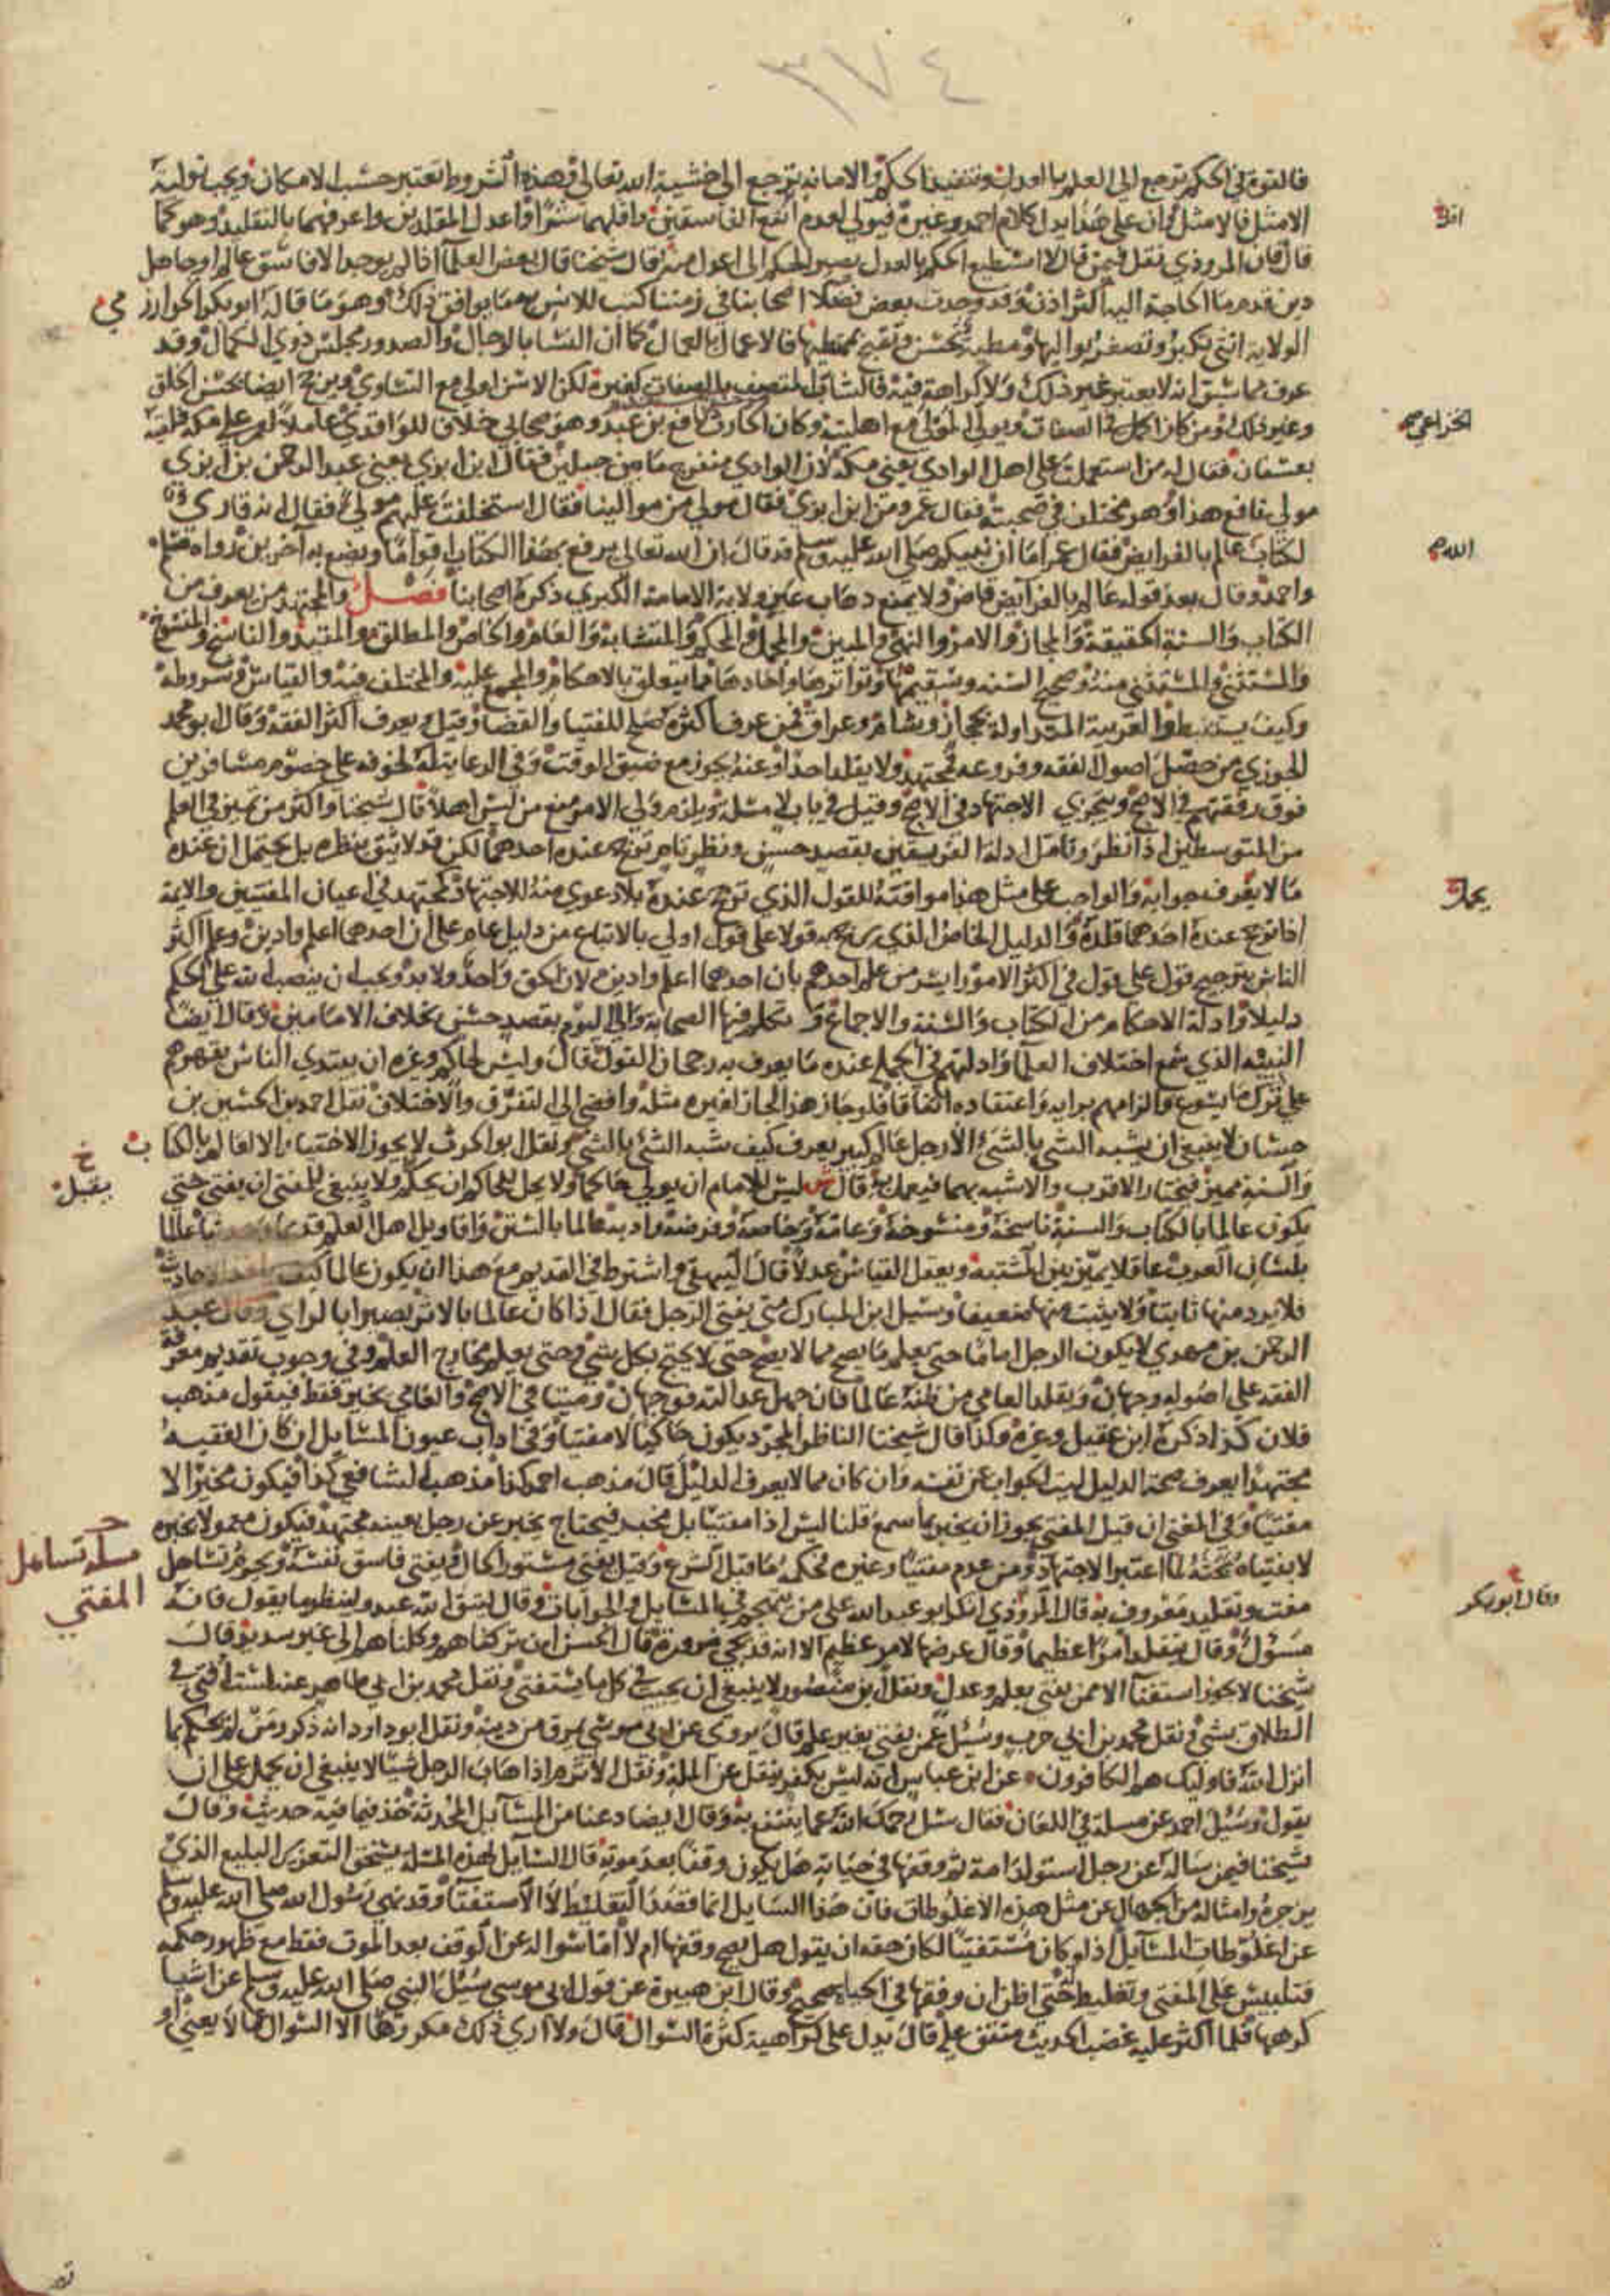 ٣٧٤
فالقوة في الحكم ترجع الى العلم بالعدل وتنفيذ الحكم والامانة ترجع الى خشية الله تعالى وهذه الشروط تعتبر حسب الامكان ويجب تولية
الامثل فالامثل وان على هذا يدل كلام احمد وغيره فيولي لعدم انفع الفاسقين واقلهما شرا واعدل المقلدين واعرفهما بالتقليد وهو كما
قال فان المروذي نقل فيمن قال لا استطيع الحكم بالعدل يصير الحكم الى اعدل منه قال شيخنا قال بعض العلماء اذا لم يوجد الا فاسق عالم او جاهل
دين قدم ما الحاجة اليه اكثر اذن وقد وجدت بعض فضلا اصحابنا في زمننا كتب للانس بهما يوافق ذلك وهو ما قاله ابو بكر الخوارزمي
الولاية انثى تكبر وتصغر بواليها ومطية تحسن وتقبح بممتطيها فالاعمال بالعمال كما ان النسا بالرجال والصدور مجلس ذوي الكمال وقد
عرف مما سبق انه لا يعتبر غير ذلك ولا كراهة فيه فالشاب المتصف بالصفات كغيره لكن الاسن اولى مع التساوي ويرجح ايضا بحسن الخلق
وغير ذلك ومن كان اكمل في الصفات ويولي المولى مع اهليته وكان نافع بن عبد الحارث وهو صحابي خلافا للواقدي عاملا لعمر على مكة فلقيه
بعسفان فقال له من استعملت على اهل الوادي يعني مكة لان الوادي منفرج ما بين جبلين فقال ابن ابزى يعني عبد الرحمن بن ابزى
مولى نافع هذا وهو مختلف في صحبته فقال عمر ومن ابن ابزى فقال مولى من موالينا فقال استخلفت عليهم مولى فقال انه قارئ
لكتاب عالم بالفرايض فقال عمر اما ان نبيكم صلى الله عليه وسلم قد قال ان الله تعالى يرفع بهذا الكتاب اقواما ويضع به آخرين رواه مسلم
واحمد وقال بعد قوله عالم بالفرايض قاض ولا يمنع ذهاب عين ولاية الامامة الكبرى ذكره اصحابنا فصل والمجتهد من يعرف من
الكتاب والسنة الحقيقة والمجاز والامر والنهي والمبين والمجمل والمحكم والمتشابه والعام والخاص والمطلق والمقيد والناسخ والمنسوخ
والمستثنى والمستثنى منه وصحيح السنة وسقيمها وتواترها واحادها مما يتعلق بالاحكام والمجمع عليه والمختلف فيه والقياس وشروطه
وكيف يستنبط والعربية المتداولة بحجاز وشام وعراق فمن عرف اكثره صلح للفتيا والقضا وقيل يعرف اكثر الفقه وقال ابو محمد
الجوزي من حصل اصول الفقه وفروعه فمجتهد ولا يقلد احدا وعنه يجوز مع ضيق الوقت وفي الرعاية كخوفه على خصوم مسافرين
فوق رفقتهم في الاصح ويتجزى الاجتهاد في الاصح وقيل في باب لا مسئلة ويلزم ولي الامر منع من ليس اهلا قال شيخنا واكثر من تميز في العلم
من المتوسطين اذا نظر وتامل ادلة الفريقين بقصد حسن ونظر تام ترجح عنده احدهما لكن قد لا يثق بنظره بل يحتمل ان عنده
ما لا يعرف جوابه فالواجب على مثل هذا موافقته للقول الذي ترجح عنده بلا دعوى منه للاجتهاد كمجتهد في اعيان المفتين والايمة
اذا ترجح عنده احدهما قلده والدليل الخاص الذي يرجح به قولا على قول اولى بالاتباع من دليل عام على ان احدهما اعلم وادين وعلم اكثر
الناس بترجيح قول على قول في اكثر الامور ايسر من علم احدهم بان احدهما اعلم وادين لان الحق واحد ولا بد ويجب ان ينصب الله على الحكم
دليلا وادلة الاحكام من الكتاب والسنة والاجماع و تكلم فيها الصحابة والى اليوم بقصد حسن بخلاف الامامين وقال ايضا
النبيه الذي سمع اختلاف العلما وادلتهم في الجملة عنده ما يعرف به رجحان القول قال وليس لحاكم وغيره ان يبتدي الناس بقهرهم
على ترك ما يسوغ والزامهم برايه واعتقاده اتفاقا فلو جاز هذا لجاز لغيره مثله وافضى الى التفرق والاختلاف نقل احمد بن الحسين بن
حسان لا ينبغي ان يشبه الشي بالشي الا رجل عالم كبير يعرف كيف يشبه الشي بالشي ونقل ابو الحرث لا يجوز الاختيار الا لعالم بالكتاب
والسنة مميز فيختار الاقرب والاشبه بهما فيعمل به قال ش ليس للامام ان يولي حاكما ولا يحل للحاكم ان يحكم ولا ينبغي للمفتي ان يفتي حتى
يكون عالما بالكتاب والسنة ناسخة ومنسوخة وعامة وخاصة وفرضه وادبه عالما بالسنن واقاويل اهل العلم عالما
بلسان العرب عاقلا يميز بين المشتبه ويعقل القياس عدلا قال البيهقي واشترط في القديم مع هذا ان يكون عالما كيف
فلا يرد منها ثابتا ولا يثبت منها ضعيفا وسئل ابن المبارك متى يفتي الرجل فقال اذا كان عالما بالاثر بصيرا بالراي وقال عبد
الرحمن بن مهدي لا يكون الرجل اماما حتى يعلم ما يصح مما لا يصح حتى لا يحتج بكل شي وحتى يعلم مخارج العلم وفي وجوب تقديم معرفة
الفقه على اصوله وجهان ويقلد العامي من ظنه عالما فان جهل عدالته فوجهان وميتا في الاصح والعامي يخير فقط فيقول مذهب
فلان كذا ذكره ابن عقيل وغيره وكذا قال شيخنا الناظر المجرد يكون حاكيا لا مفتيا وفي اداب عيون المسايل ان كان الفقيه
مجتهدا يعرف صحة الدليل كتب الجواب عن نفسه وان كان ممن لا يعرف الدليل قال مذهب احمد كذا مذهب الشافعي كذا فيكون مخبرا لا
مفتيا وفي المغني ان قيل المفتي يجوز ان يخبر بما سمع قلنا ليس اذا مفتيا بل مخبر فيحتاج يخبر عن رجل بعينه مجتهد فيكون معمولا بخبره
لا بفتياه لما اعتبر الاجتهاد ومن عدم مفتيا وغيره فحكمه ما قبل الشرع وقيل يفتي مستور الحال ويفتي فاسق نفسه ويحرم تساهل
مفت وتقليد معروف به قال المروذي انكر ابو عبد الله على من يتهجم في المسايل والجوابات وقال ليتق الله عبد ولينظر ما يقول فانه
مسؤل وقال يتقلد امرا عظيما وقال عرضها لامر عظيم الا انه قد تجي ضرورة قال الحسن ان تركناهم وكلناهم الى غير سديد قال
شيخنا لا يجوز استفتا الا ممن يفتي بعلم وعدل ونقل ابن منصور لا ينبغي ان يجيب في كل ما يستفتى ونقل محمد بن ابي طاهر عنه افتى في
الطلاق بشي ونقل محمد بن ابي حرب وسئل عمن يفتي بغير علم قال يروى عن ابي موسى يمرق من دينه ونقل ابو داود انه ذكر ومن لم يحكم بما
انزل الله فاوليك هم الكافرون عن ابن عباس انه ليس بكفر ينقل عن الملة ونقل الاثرم اذا هاب الرجل شيئا لا ينبغي ان يحمل على ان
يقول وسئل احمد عن مسلة في اللعان فقال سل رحمك الله عما ينتفع به وقال ايضا دعنا من المسايل المحدثة خذ فيما فيه حديث وقال
شيخنا فيمن ساله عن رجل استولد امة ثم وقفها في حياته هل يكون وقفا بعد موته قال السايل لهذه المسئلة يستحق التعزير البليغ الذي
يزجره وامثاله من الجهال عن مثل هذه الاغلوطات فان هذا السايل انما قصد التغليط لا الاستفتا وقد نهى رسول الله صلى الله عليه وسلم
عن اغلوطات المسايل اذ لو كان مستفتيا لكان حقه ان يقول هل يصح وقفها ام لا اما سواله عن الوقف بعد الموت فقط مع ظهور حكمه
فتلبيس على المفتي وتغليط حتى اظن ان وقفها في الحياة صحيح وقال ابن هبيرة عن قول ابي موسى سئل النبي صلى الله عليه وسلم عن اشيا
كرهها فلما اكثر عليه غضب الحديث متفق عليه قال يدل على كراهية كثرة السوال قال ولا ارى ذلك مكروها الا السوال عما لا يعني او
الخزاعي صح
الله صح
يقبل
مسلة تساهل
المفتي
وقال ابو بكر